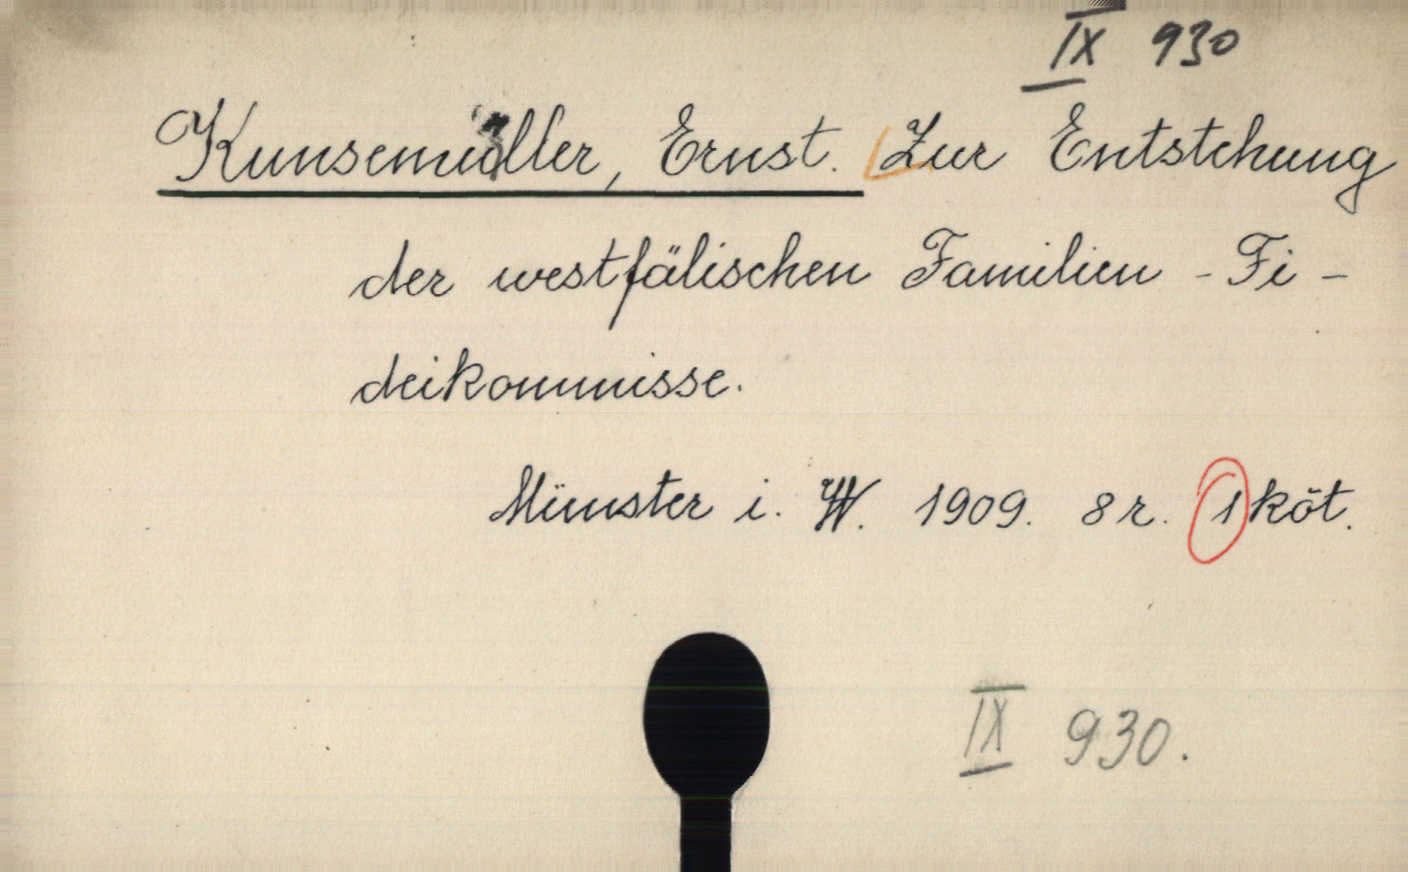 IX 930
Kunsemüller, Ernst. Zur Entstehung
der westfälischen Familien - Fi -
deikommisse.
Münster i. W. 1909. 8 r. 1 köt.
IX 930.